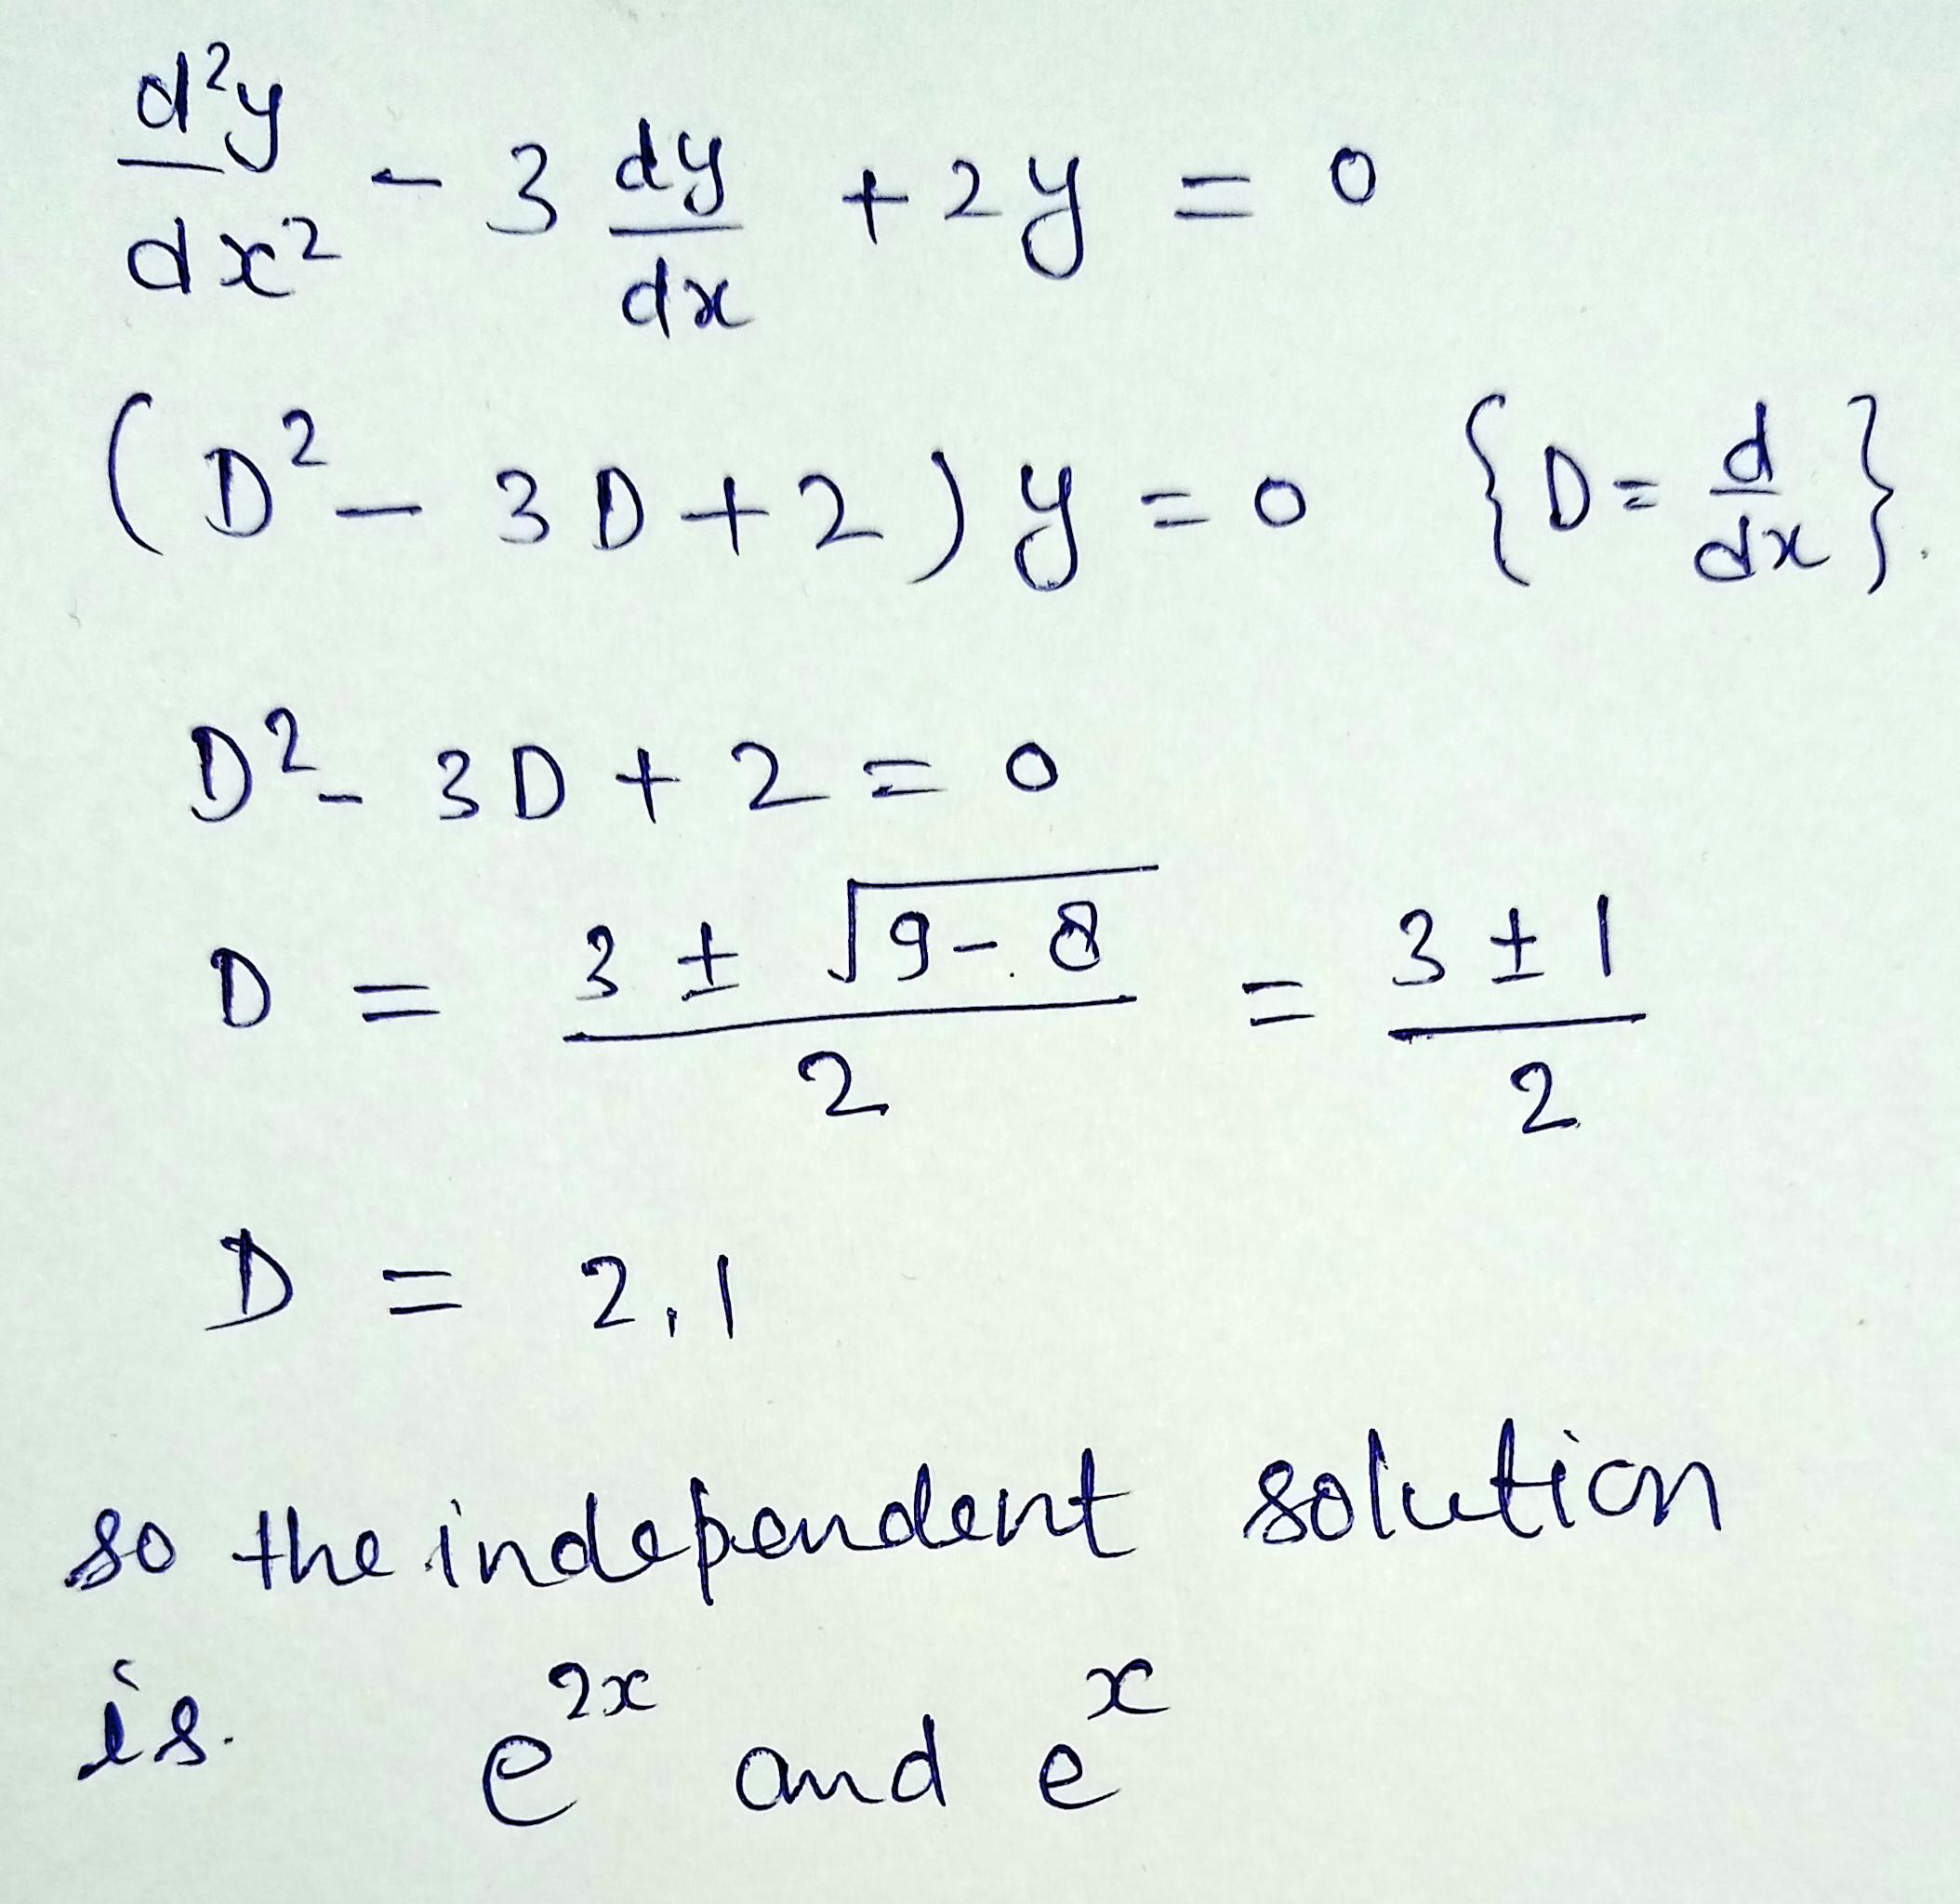 d²y/dx² - 3 dy/dx + 2y = 0
(D² - 3D + 2) y = 0 {D = d/dx}.
D² - 3D + 2 = 0
D = (3 ± √(9 - 8))/2 = (3 ± 1)/2
D = 2, 1
so the independent solution
is. e^(2x) and e^x